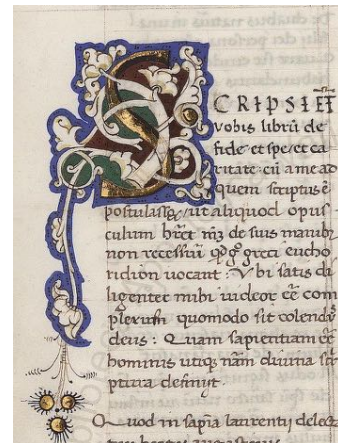 SCRIPSI ET
vobis librū de
fide et spe et ca
ritate cū a me ad
quem scriptus ē
postulasset ut aliquod opus
culum de suis manib;
non recessuū greci encho
ridion uocant : Vbi satis di
ligenter mihi uideor eē com
plexum quomodo sit colendꝰ
deus : Quam sapientiam eē
hominis utiqȝ nām diuina scri
ptura definiȷt
Quod in sapīa laurentij delec